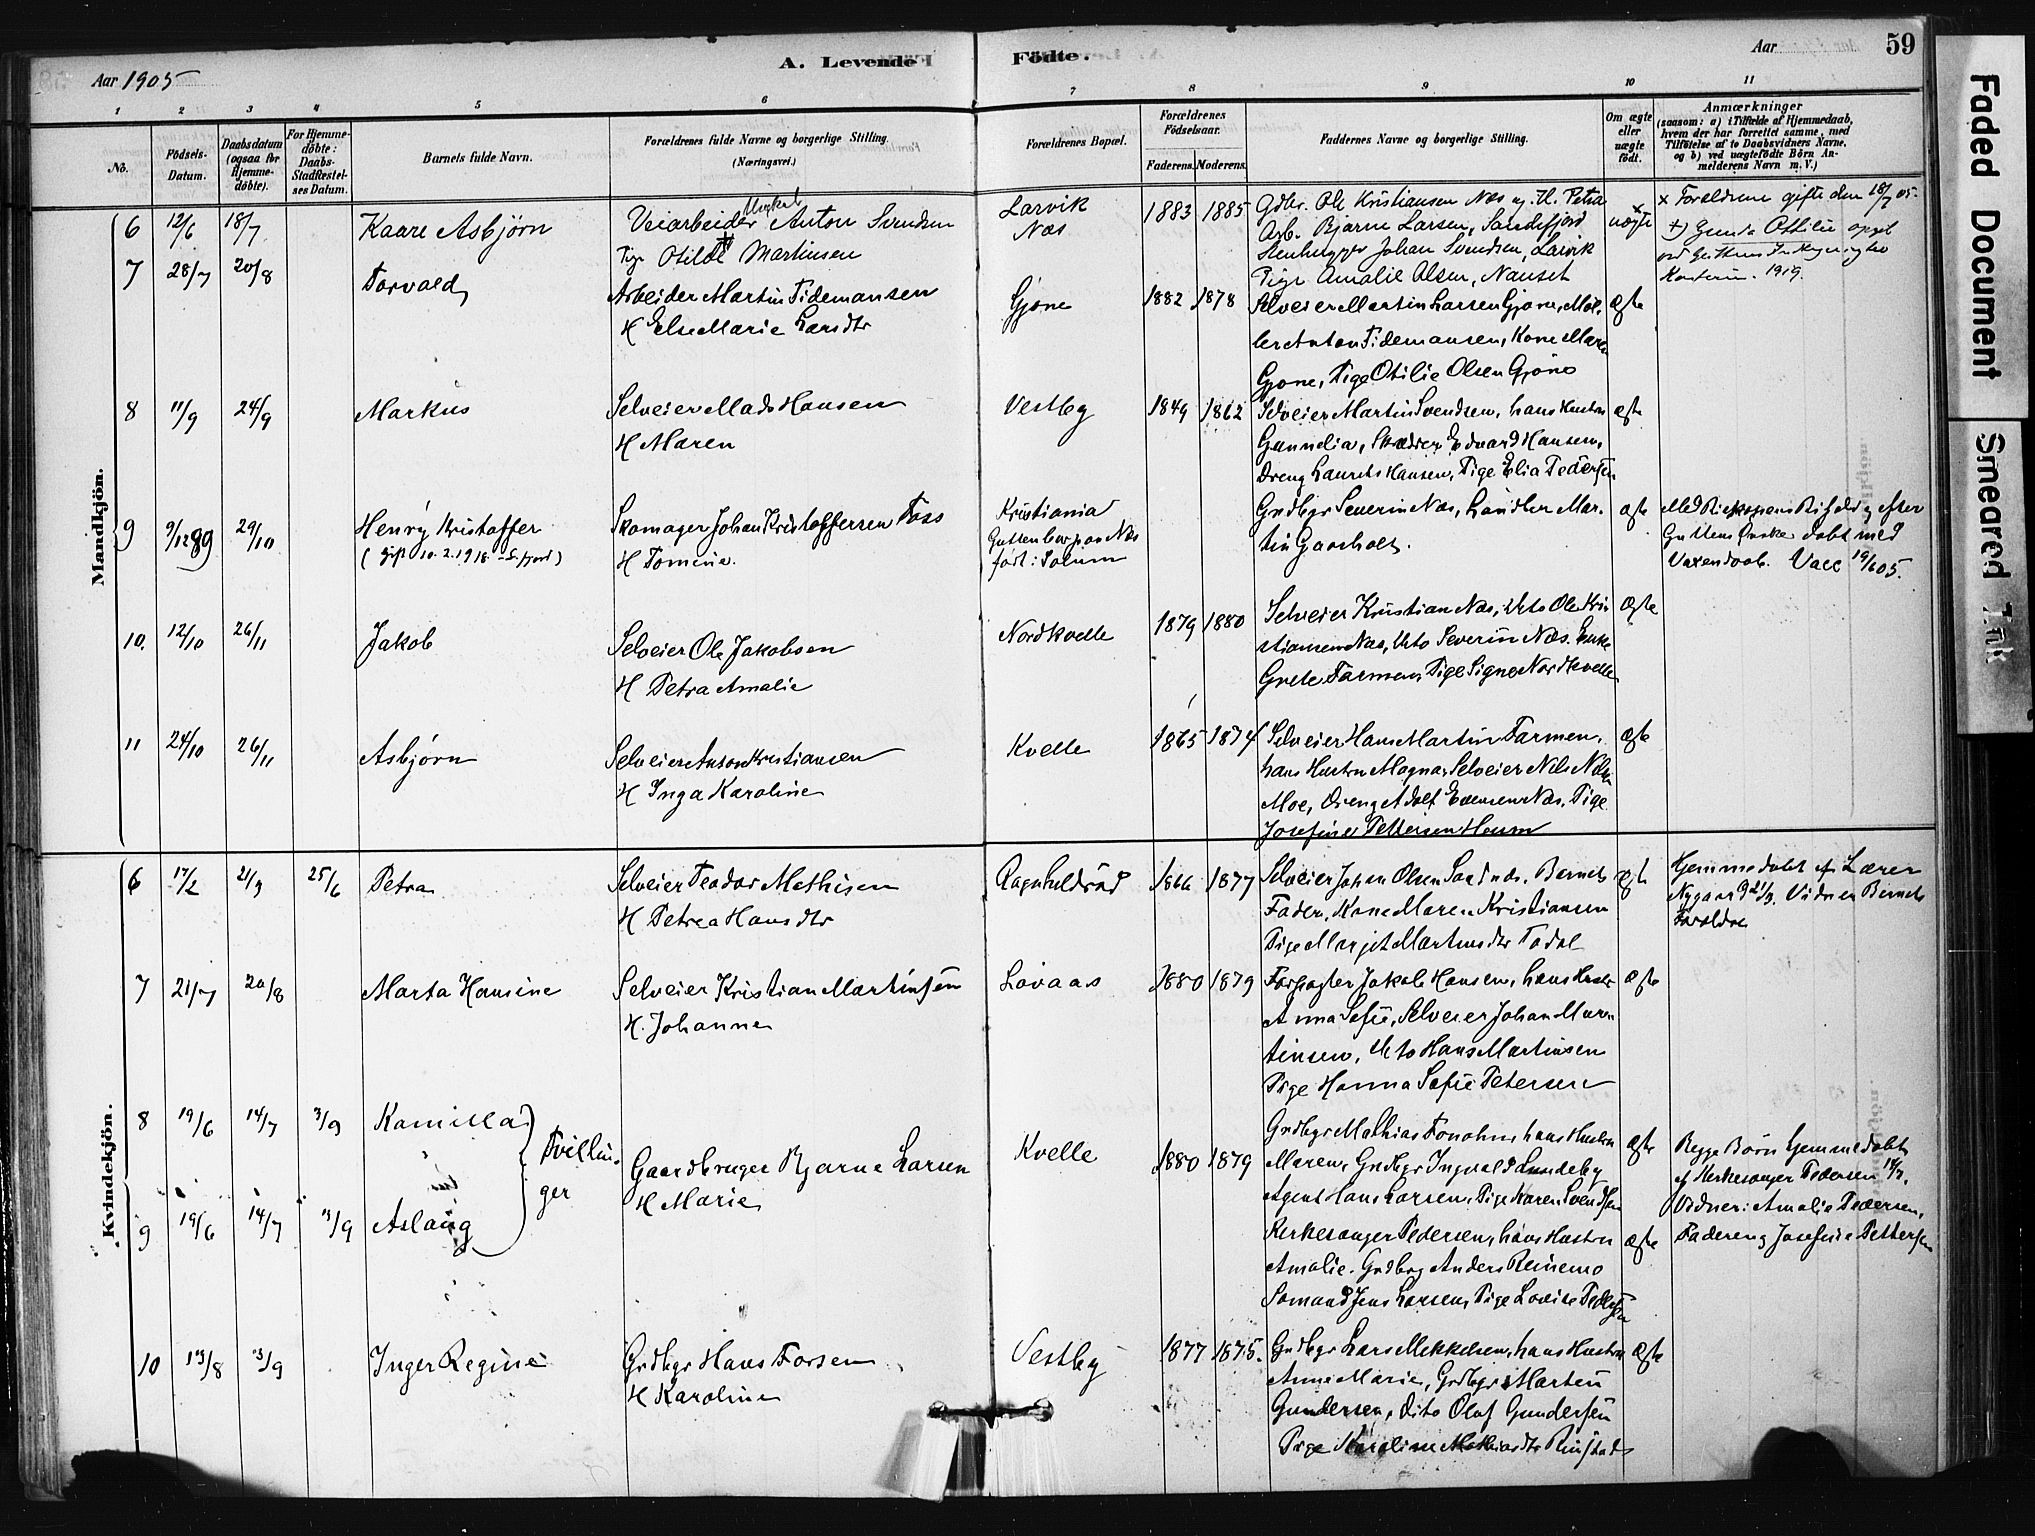 Aar 1905
A. Levende
Födte.
Aar
59
Faded Document
Smeared Ink
1 2 3 4 5 6 7 8 9 10 11
No.
Födsels-Datum.
Daabsdatum (ogsaa for Hjemme-döbte).
For Hjemme-döbte: Daabs-Stadfæstel-ses Datum.
Barnets fulde Navn.
Forældrenes fulde Navne og borgerlige Stilling.
(Næringsvei.)
Forældrenes Bopæl.
Forældrenes Födselsaar.
Faderens. Moderens.
Faddernes Navne og borgerlige Stilling.
Om ægte eller uægte födt.
Anmærkninger
(saasom: a) i Tilfælde af Hjemmedaab, hvem der har forrettet samme, med Tilföielse af to Daabsvidners Navne, og b) ved uægtefödte Börn An-melderens Navn m. V.)
Mandkjön.
6 12/6 18/7 Kaare Asbjørn
Veiarbeider Anton Svendsen
Pige Otilde Martinsen
Larvik
Næs
1883 1885
Gdbr. Ole Kristiansen Næs og H. Petra
Arb. Bjarne Larsen, Sandefjord
Stenhugger Johan Svendsen, Larvik
Pige Amalie Olsen, Nanset
uægte
x Forældrene gifte den 18/7 05.
+) Gunda Ottilie opgit
1919.
7 28/7 20/8 Torvald
Arbeider Martin Tidemansen
H Else Marie Larsdtr
Gjøne
1882 1878
Selveier Martin Larsen Gjøne, Møl-
ler Anton Tidemansen, Kone Maren
Gjone, Pige Otilie Olsen Gjøne
ægte
8 11/9 24/9 Markus
Selveier Mads Hansen
H Maren
Vestby
1849 1862
Selveier Martin Svendsen, hans Hustru
Gunnelia, Skrædder Edvard Hansen,
Dreng Laurits Hansen, Pige Elia Pedersen
ægte
9 9/12 89 29/10 Henry Kristoffer
(Gift 10.2.1918 - S.fjord)
Skomager Johan Kristoffersen Foss
H Tomine.
Kristiania
Gutten bor paa Næs
født i Solum
Grdbgr Severin Næs, Landhr Mar-
tin Gaasholt.
ægte
Med Biskopens Bifald og efter
Guttens Ønske døbt med
Voxendaab. Vacc 19/6 05.
10. 12/10 26/11 Jakob
Selveier Ole Jakobsen
H Petra Amalie
Nordkvelle
1879 1880
Selveier Kristian Næs, dito Ole Kri
stiansen Næs, dito Severin Næs. Enke
Grete Farmen, Pige Signe Nordkvelle
ægte
11 24/10 26/11 Asbjørn
Selveier Anton Kristiansen
H Inga Karoline
Kvelle
1865 1874
Selveier Hans Martin Farmen,
hans Hustru Magna, Selveier Nils Nilsen
Moe, Dreng Adolf Evensen Næs, Pige
Josefine Pettersen Heum
ægte
Kvindekjön.
6 17/2 21/3 25/6 Petra
Selveier Teodor Mathisen
H Petrea Hansdtr
Ragnhildrød
1866 1877
Selveier Johan Olsen Sandnæs. Barnets
Fader, Kone Maren Kristiansen
Pige Margit Martinsdtr Todal
ægte
Hjemmedøbt af Lærer
Nygaard 21/3. Vidner Barnets
Forældre
7 21/7 20/8 Marta Hansine
Selveier Kristian Martinsen
H. Johanne
Løvaas
1880 1879
Forpagter Jakob Hansen, hans Hustru
Anna Sofie, Selveier Johan Mar-
tinsen, dito Hans Martinsen
Pige Hanna Sofie Petersen
ægte
8 19/6 14/7 3/9 Kamilla
Tvillin-
ger
9 19/6 14/7 3/9 Aslaug
Gaardbruger Bjarne Larsen
H Marie
Kvelle
1880 1879
Grdbgr Mathias Fonohm, hans Hustru
Maren, Grdbgr Ingvald Lundeby
Agent Hans Larsen, Pige Karen Svendsen
ægte
Kirkesanger Pedersen, hans Hustru
Amalie. Grdbgr Anders Reinemo
Sømand Jens Larsen, Pige Lovise Pedersen
ægte
Begge Børn hjemmedøbt
af Kirkesanger Pedersen 14/7.
Vidner: Amalie Pedersen,
Faderen og Josefine Pettersen
10 13/8 3/9 Inger Regine
Grdbgr Hans Forsen
H Karoline
Vestby
1877 1875.
Grdbgr Lars Mikkelsen, hans Hustru
Anne Marie, Grdbgr Martin
Gundersen, dito Olaf Gundersen
Pige Karoline Mathiasdtr Rinstad
ægte